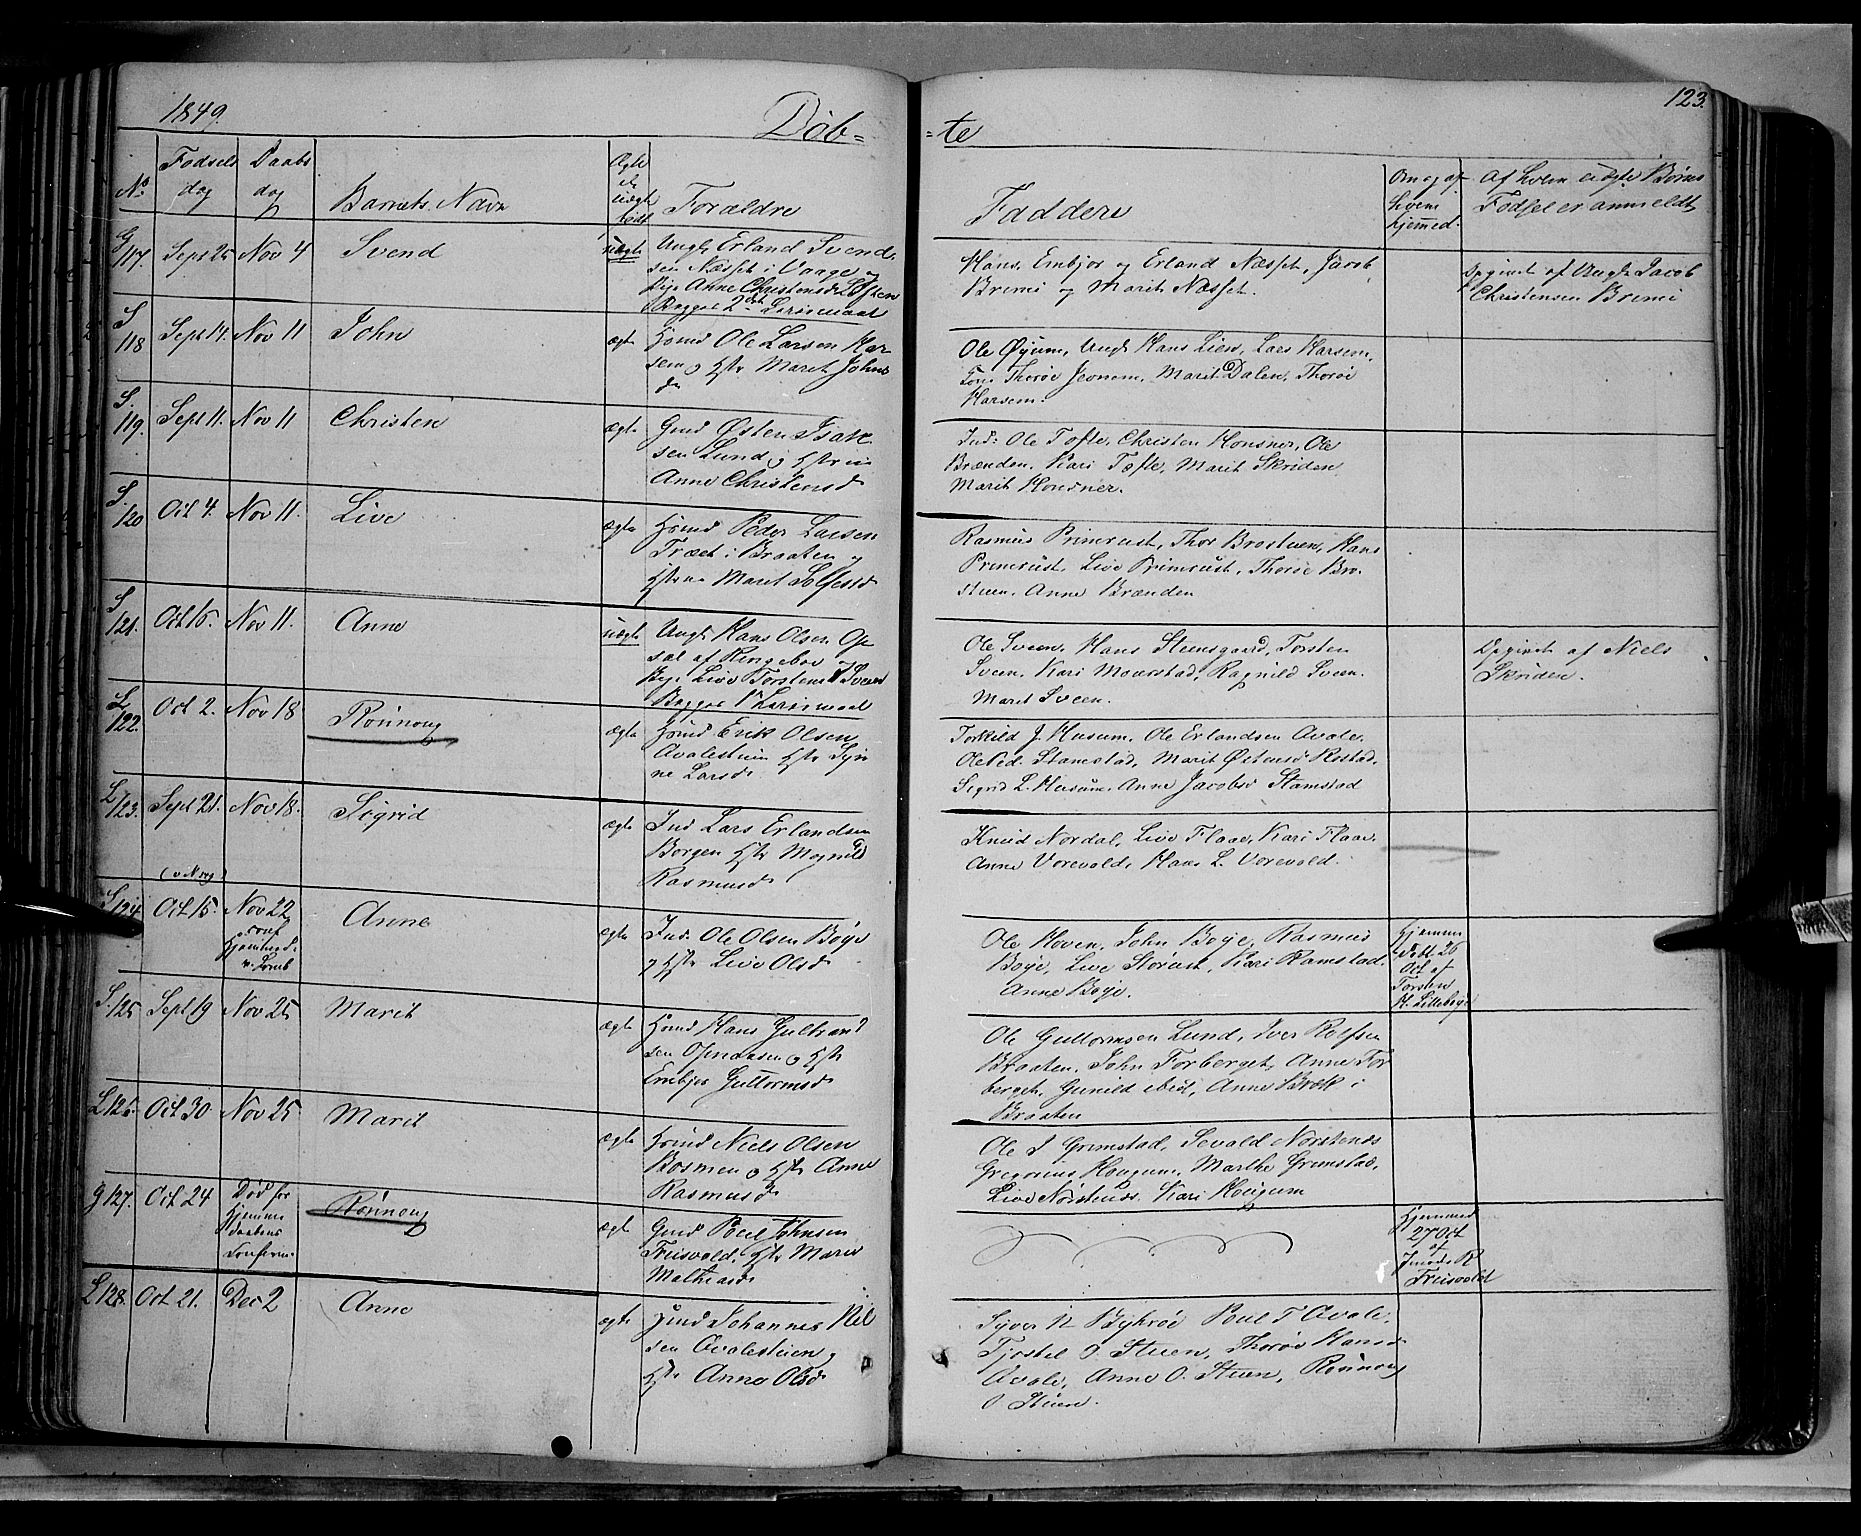 1849.
Døb=
=te
123.
No
Fødsels
dag
Daabs
dag
Barnets Navn
Ægte
el.
uægte
født
Forældre
Faddere
Om og af
hvem
hjemmed.
Af hvem uægte Børns
Fødsel er anmeldt
G
117.
Sept 25
Nov 4
Svend
uægte
Ungk. Erland Svend-
sen Næsset i Vaage og
Pige Anne Christensd
Begges 2det Leiermaal
Hans, Embjør og Erland Næsset, Jacob
Bremi og Marit Næsset.
Opgivet af Ungk. Jacob
Christensen Bremi
S
118
Sept 14.
Nov 11
John
ægte
Hmd Ole Larsen Har
sem og Hstr Marit Johns
dr
Ole Øyum, Ungk Hans Lien, Lars Harsem,
Kone Thorøe Jevnem, Marit Dalen, Thorøe
Harsem.
S.
119.
Sept 11.
Nov 11
Christen
ægte
Gmd Østen Isak
sen Lund og Hstr
Anne Christensd
Ind: Ole Tofte, Christen Honsner, Ole
Brænden, Kari Tofte, Marit Skriden
Marit Honsner.
S.
120
Oct 4.
Nov 11.
Live
ægte
Hmd Peder Larsen
Træet i Braaten og
Hstr Marit Solfestd
Rasmus Primrust, Thor Brostuen, Hans
Primrust, Live Primrust, Thorøe Bro-
stuen, Anne Brænden
S
121.
Oct 16.
Nov 11.
Anne
uægte
Ungk Hans Olsen Op
sal af Ringeboe
Pige Live Torstensd Sveen
Begges 1ste Leiermaal
Ole Sveen, Hans Steensgaard, Torsten
Sveen, Kari Mourstad, Ragnild Sveen.
Marit Sveen.
Opgivet af Niels
Skriden.
L
122.
Oct 2.
Nov 18
Rønnoug
ægte
Hmd Erik Olsen
Avalestuen Hstr Syn
ne Larsd
Torkild J. Husum, Ole Erlandsen Avale,
Ole Ped. Stamstad, Marit Østensd Rostad,
Sigrid L. Husum, Anne Jacobsd Stamstad
L
123.
Sept 21.
Nov 18.
Sigrid
ægte
Ind Lars Erlandsen
Borgen Hstr Magnild
Rasmusd
Knud Nordal, Live Flaae, Kari Flaae
Anne Vorevold, Hans L. Vorevold.
S
124.
Oct 15.
Nov 22
conf
Hjemmed.
v. Lomb
Anne
ægte
Ind. Ole Olsen Bøye
og Hstr Live Olsd
Ole Hoven, John Bøye, Rasmus
Bøye, Live Storust, Kari Ramstad.
Anne Bøye.
Hjemme
døbt 26
Oct af
Torsten
H. Lillebøye
S.
125
Sept 19
Nov 25
Marit
ægte
Hmd Hans Gulbrand
sen Opnaasen og Hstr
Embjør Guttormsd
Ole Guttormsen Lund, Iver Rolfsen
Braaten, John Forberget, Anne For
berget, Gunild ibid, Anne Bræk i
Braaten
L 126.
Oct 30
Nov 25
Marit
ægte
Hmd Niels Olsen
Bosmen og Hstr Anne
Rasmusd
Ole J Grimstad, Sevald Nørstends
Gregorius Hougum, Marthe Grimstad,
Live Nørstends. Kari Hougum
G 127.
Oct 24
Død før
Hjemme
daabens
Conferm.
Rønnoug
ægte
Gmd Poul Johnsen
Freisvold, Hstr Marie
Mathiasd
Hjemmed
27 Oct
af
R
Freisvold
L 128.
Oct 21.
Dec 2
Anne
ægte
Hmd Johannes Niel
sen Avalestuen og
Hstr Anne Olsd
Syver N Byhrøe Poul T Avale,
Tjøstel O. Stuen, Thorøe Hansd
Avale, Anne O. Stuen, Rønnoug
O Stuen.